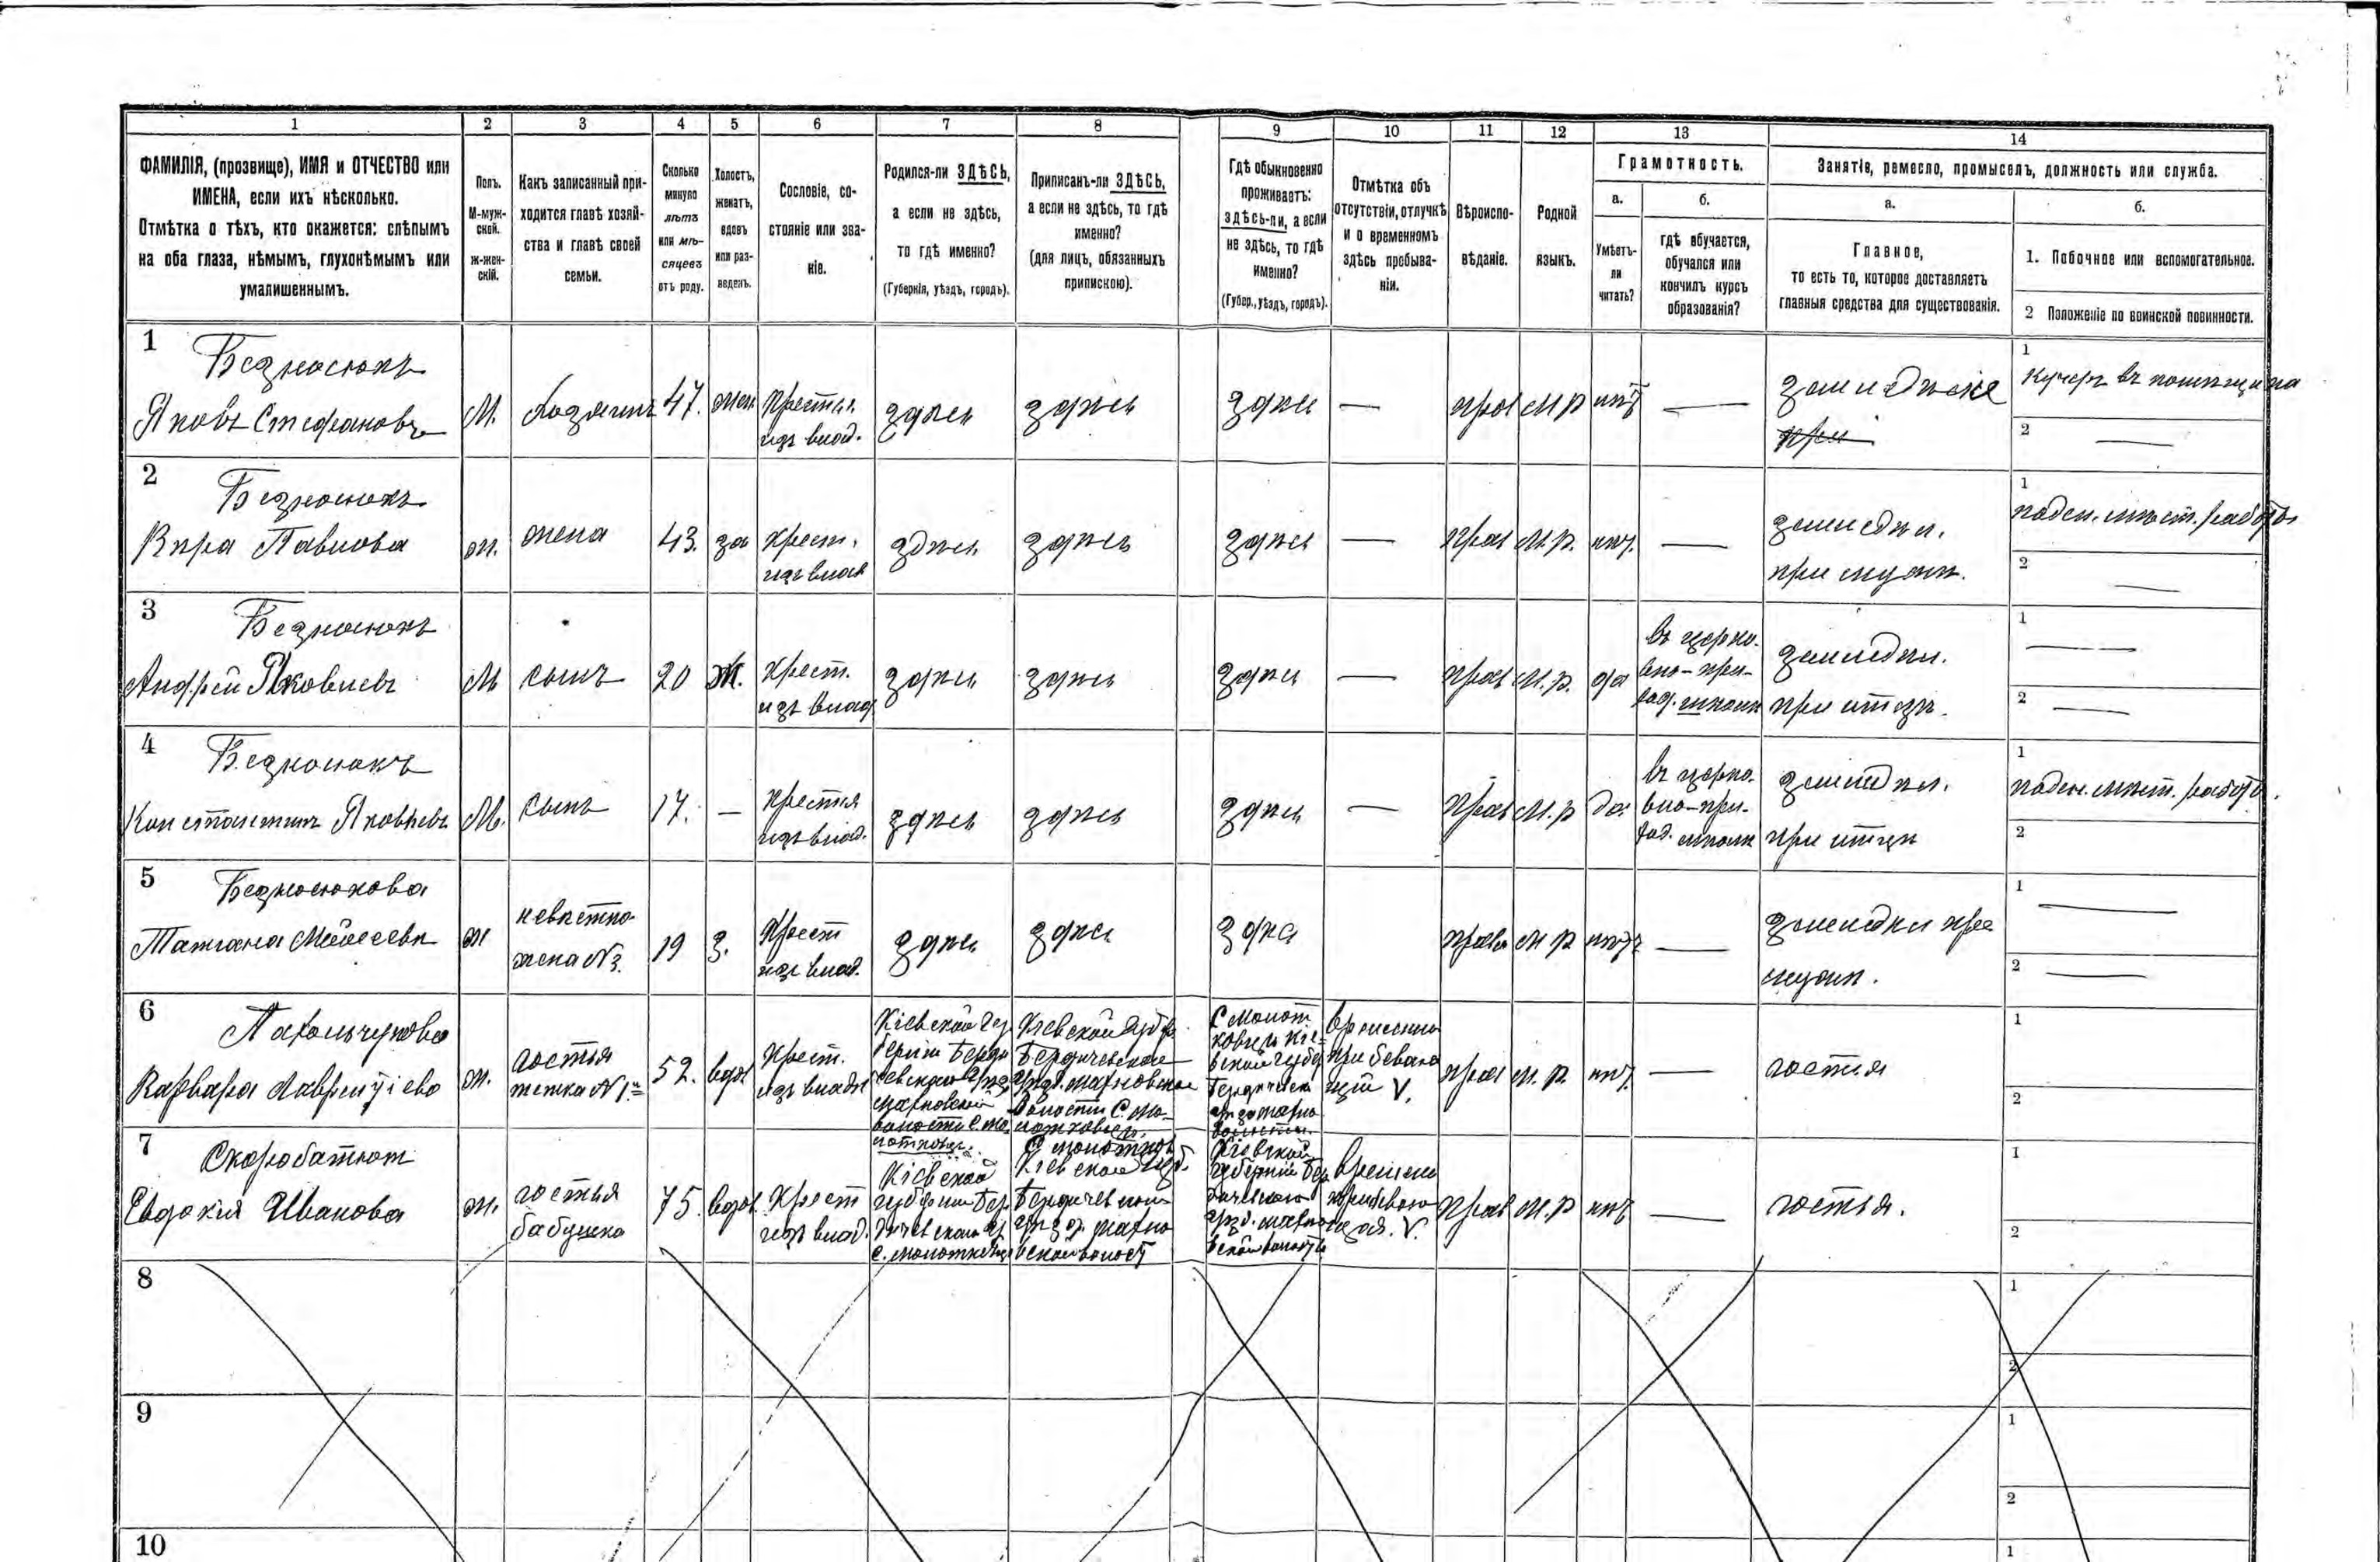 1 2 3 4 5 6 7 8 9 10 11 12 13 14
ФАМИЛІЯ, (прозвище), ИМЯ и ОТЧЕСТВО или
ИМЕНА, если ихъ нѣсколько.
Отмѣтка о тѣхъ, кто окажется: слѣпымъ
на оба глаза, нѣмымъ, глухонѣмымъ или
умалишеннымъ.
Полъ.
М-муж-
ской.
Ж-жен-
скій.
Какъ записанный при-
ходится главѣ хозяй-
ства и главѣ своей
семьи.
Сколько
минуло
лѣтъ
или мѣ-
сяцевъ
отъ роду.
Холостъ,
женатъ,
вдовъ
или раз-
веденъ.
Сословіе, со-
стояніе или зва-
ніе.
Родился-ли ЗДѢСЬ,
а если не здѣсь,
то гдѣ именно?
(Губернія, уѣздъ, городъ).
Приписанъ-ли ЗДѢСЬ,
а если не здѣсь, то гдѣ
именно?
(для лицъ, обязанныхъ
припискою).
Гдѣ обыкновенно
проживаетъ:
здѣсь-ли, а если
не здѣсь, то гдѣ
именно?
(Губер., уѣздъ, городъ).
Отмѣтка объ
отсутствіи, отлучкѣ
и о временномъ
здѣсь пребыва-
ніи.
Вѣроиспо-
вѣданіе.
Родной
языкъ.
Грамотность.
а.
Умѣетъ-
ли
читать?
б.
гдѣ обучается,
обучался или
кончилъ курсъ
образованія?
Занятіе, ремесло, промыселъ, должность или служба.
а.
Главное,
то есть то, которое доставляетъ
главныя средства для существованія.
б.
1. Побочное или вспомогательное.
2 Положеніе по воинской повинности.
1
Безносюкъ
Яковъ Стефановъ
М.
Хозяинъ
47.
жен
Крестья.
изъ влад.
здѣсь
здѣсь
здѣсь
—
прав
м р
нѣт
—
земледѣліе
при
1
кучеръ въ помѣщика
2 —
2
Безносюкъ
Вѣра Павлова
ж.
жена
43.
за
Крест.
изъ влад
здѣсь
здѣсь
здѣсь
—
прав
м.р.
нѣт.
—
земледѣл.
при мужѣ.
1
поден. мѣст. работы
2 —
3
Безносюкъ
Андрей Яковлевъ
М
сынъ
20
Ж.
Крест.
изъ влад
здѣсь
здѣсь
здѣсь
—
прав
м.р.
да
въ церко-
вно-при-
ход. школѣ
земледѣл.
при отцѣ.
1 —
2 —
4
Безносюкъ
Константинъ Яковлевъ
М.
сынъ
17.
—
Крестья
изъ влад.
здѣсь
здѣсь
здѣсь
—
прав
м.р
да.
въ церко-
вно-при-
ход. школѣ
земледѣл.
при отцѣ
1
поден. мѣст. работы.
2
5
Безносюкова
Татіана Моисеева
ж
невѣстка
жена №3.
19
з.
Крест
изъ влад.
здѣсь
здѣсь
здѣсь
прав
м р
нѣтъ
—
земледѣл при
мужѣ.
1 —
2 —
6
Варвара
ж.
гостья
тетка №1й
52.
вдов
Крест.
изъ влад
Кіевской гу
берніи Берди
чевскаго уѣзд
Махновской
волости с. Мо
лотковцы.
Кіевской губер.
Бердичевскаго
уѣзд. Махновской
волости с. Мо-
лотковцы.
С Молот
ковцы Кіе-
вской губер
Бердичевск
уѣзда Махно
волости.
временно
пребываю
щій V.
прав
м. р.
нѣт.
—
гостья
1
2
7
Скоробатюк
Евдокія Иванова
ж.
гостья
бабушка
75.
вдов.
Крест
изъ влад.
Кіевской
губерніи Бер
дичевскаго у
с. Молотковцы
С Молотков
Кіевской губ.
Бердичевскаго
уѣзда, Махно
вской волост
Кіевской
губерніи Бер
дичевскаго
уѣзд. Махно
вской волости
временно
пребываю
щая. V.
прав
м.р
нѣт
—
гостья.
1
2
8
1
2
9
1
2
10
1